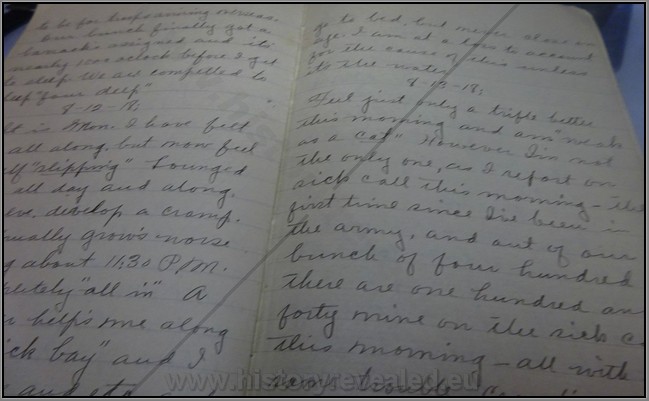 to be for troops arriving overseas.
Our bunch finally got a
barracks assigned and its
nearly 1:00 oclock before I get
to sleep. We are compelled to
sleep "four deep"
8-12-18;
It is Mon. I have felt
all along, but now feel
"slipping" Lounged
all day and along
eve. develop a cramp.
grows worse
about 11,30 P.M.
"all in" A
helps me along
"sick bay" and I
and
go to bed, but never close an
eye. I am at a loss to account
for the cause of this unless
it's the water
8-13-18;
Feel just only a trifle better
this morning and am "weak
as a cat" However I'm not
the only one, as I report on
sick call this morning - the
first time since I've been in
the army, and out of our
bunch of four hundred
there are one hundred and
forty nine on the sick
this morning - all with
same trouble
www.historyrevealed.eu